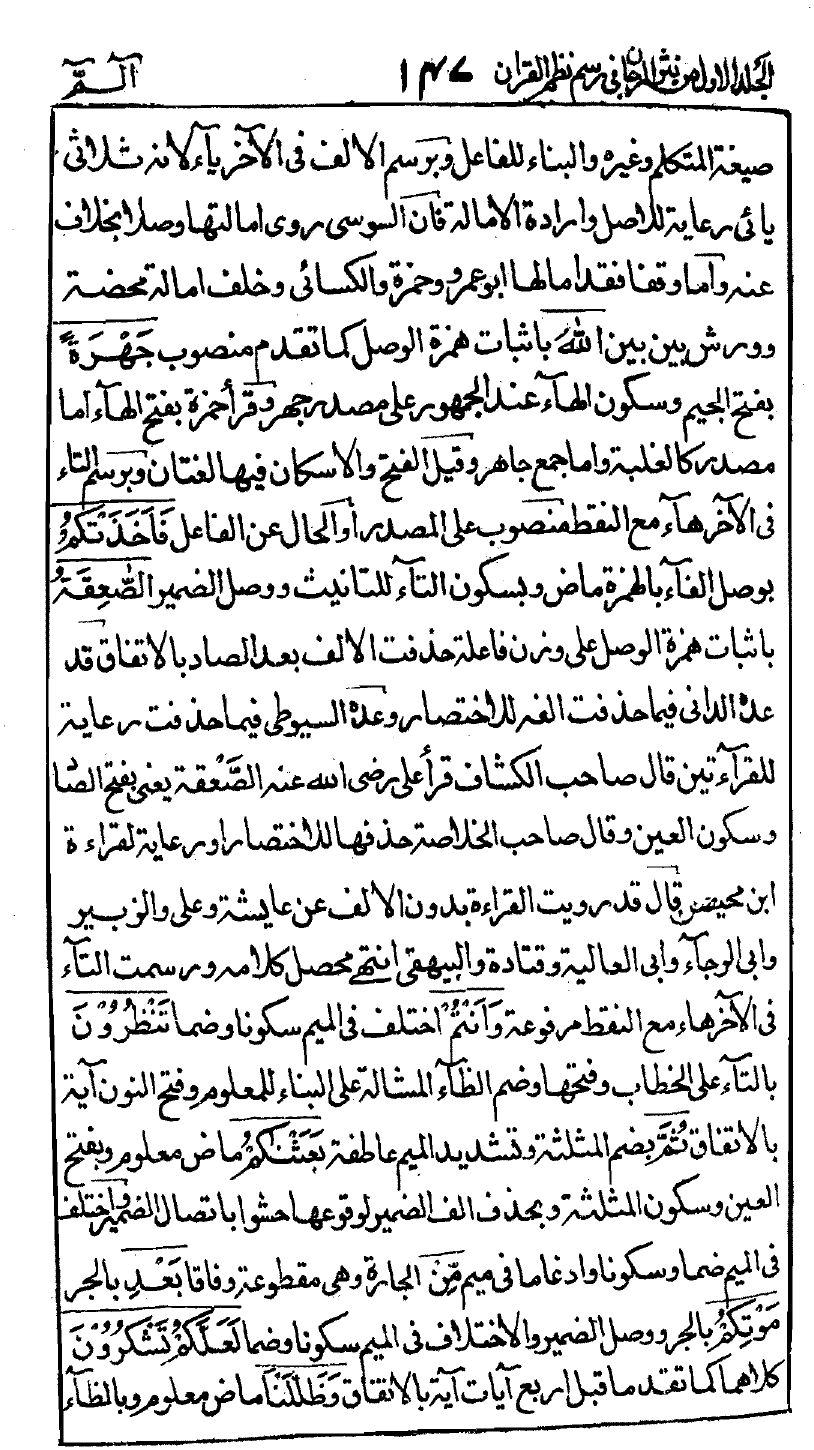 الجلد الاول من نثر المرجان فى رسم نظم القران ١٤٧ الٓـمّٓ
صيغة المتكلم وغيره والبناء للفاعل وبرسم الالف فى الآخر يآء لانه ثلاثى
يائى رعاية للاصل وارادة الامالة فان السوسى روى امالتها وصلا بخلاف
عنه واما وقفا فقد امالها ابو عمرو وحمزة والكسائى وخلف امالة محضة
وورش بين بين اللهَ باثبات همزة الوصل كما تقدم منصوب جَهْرَةً
بفتح الجيم وسكون الهآء عند الجمهور على مصدر جهر وقرأ حمزة بفتح الهآء اما
مصدر كالغلبة واما جمع جاهر وقيل الفتح والاسكان فيها لغتان وبرسم التاء
فى الآخر هآء مع النقط منصوب على المصدر أو الحال عن الفاعل فَاَخَذَتْكُمُ
بوصل الفآء بالهمزة ماض وبسكون التآء للتانيث ووصل الضمير الصّٰعِقَةُ
باثبات همزة الوصل على وزن فاعلة حذفت الالف بعد الصاد بالاتفاق قد
عده الدانى فيما حذفت الفه للاختصار وعدّه السيوطى فيما حذفت رعاية
للقرآءتين قال صاحب الكشاف قرأ على رضى الله عنه الصَّعْقة يعنى بفتح الصا
وسكون العين وقال صاحب الخلاصة حذفها للاختصار او رعاية لقراءة
ابن محيصن قال قد رويت القراءة بدون الالف عن عايشة وعلى والزبير
وابى الوجآء وابى العالية وقتادة والبيهقى انتهے محصل كلامه ورسمت التآء
فى الآخر هاء مع النقط مرفوعة وَاَنْتُمْ اختلف فى الميم سكونا وضما تَنْظُرُوْنَ
بالتآء على الخطاب وفتحها وضم الظآء المشالة على البناء للمعلوم وفتح النون آية
بالاتفاق ثُمَّ بضم المثلثة وتشديد الميم عاطفة بَعَثْنٰكُمْ ماض معلوم وبفتح
العين وسكون المثلثة وبحذف الف الضمير لوقوعها حشوا باتصال الضمير واختلف
فى الميم ضما وسكونا وادغاما فى ميم مِّنْ الجارة وهى مقطوعة وفاقا بَعْدِ بالجر
مَوْتِكُمْ بالجر ووصل الضمير والاختلاف فى الميم سكونا وضما لَعَلَّكُمْ تَشْكُرُوْنَ
كلاهما كما تقدم ما قبل اربع آيات آية بالاتفاق وَظَلَّلْنَا ماض معلوم وبالظآء